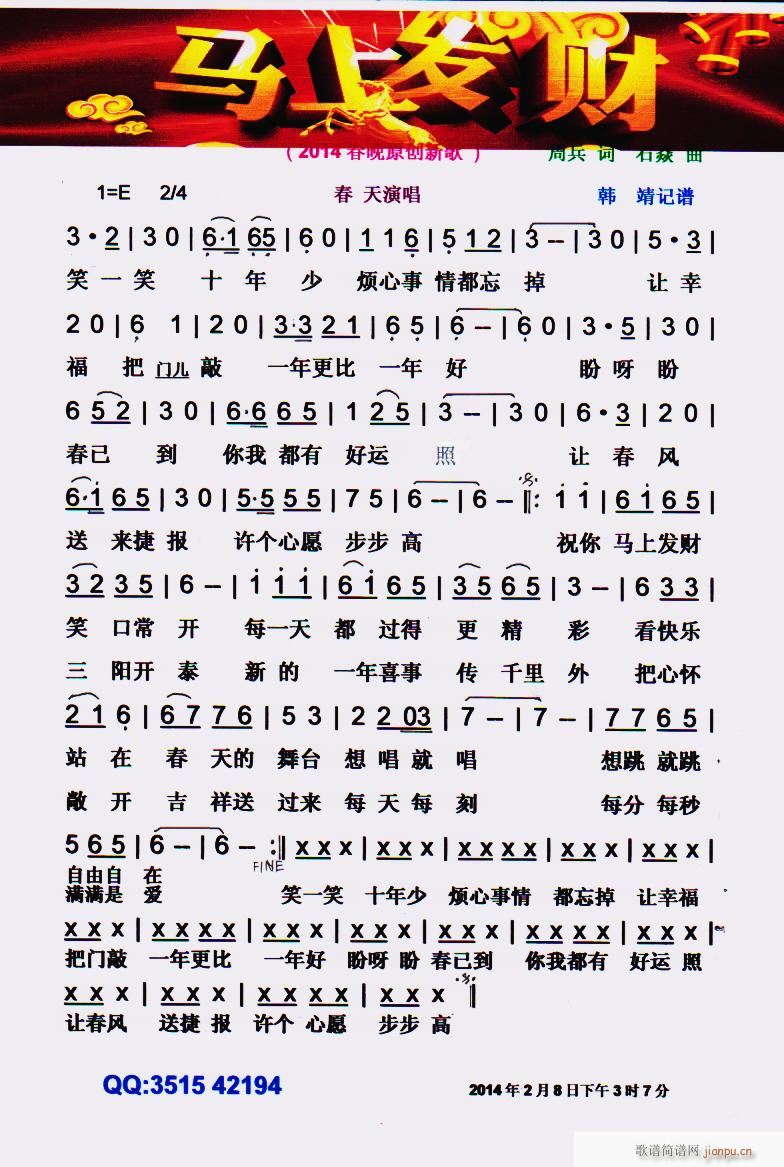 马上发财
(2014春晚原创新歌) 周兵 词 石焱 曲
1=E 2/4 春 天演唱 韩 靖记谱
3·2|30|6·1 65|60|116|512|3–|30|5·3|
笑一笑 十年少 烦心事 情都忘 掉 让幸
20|6 1|20|3·3 21|65|6–|60|3·5|30|
福 把 门儿 敲 一年更比 一年 好 盼呀盼
6 52|30|6·6 65|1 25|3–|30|6·3|20|
春已 到 你我 都有 好运 照 让 春 风
6·1 65|30|5·5 55|75|6–|6–‖: 11|61 65|
送 来捷 报 许个心愿 步步 高 祝你 马上发财
32 35|6–|1 11|61 65|35 65|3–|6 33|
笑 口常 开 每一天 都 过得 更 精 彩 看快乐
三 阳开 泰 新的 一年喜事 传 千里 外 把心怀
21 6|67 76|53|2 2 03|7–|7–|77 65|
站 在 春 天的 舞台 想 唱就 唱 想跳 就跳
敞 开 吉 祥送 过来 每 天 每 刻 每分 每秒
5 65|6–|6– :‖ x x x|x x x|x x x x|x x x|x x x|
FINE
自由自 在
满满是 爱 笑一笑 十年少 烦心事情 都忘掉 让幸福
x x x|x x x x|x x x|x x x|x x x|x x x x|x x x|
把门敲 一年更比 一年好 盼呀 盼 春已到 你我都有 好运 照
x x x|x x x x|x x x x|x x x‖
让春风 送捷 报 许个 心愿 步步 高
QQ:3515 42194
2014年2月8日下午3时7分
歌谱简谱网
jianpu.cn